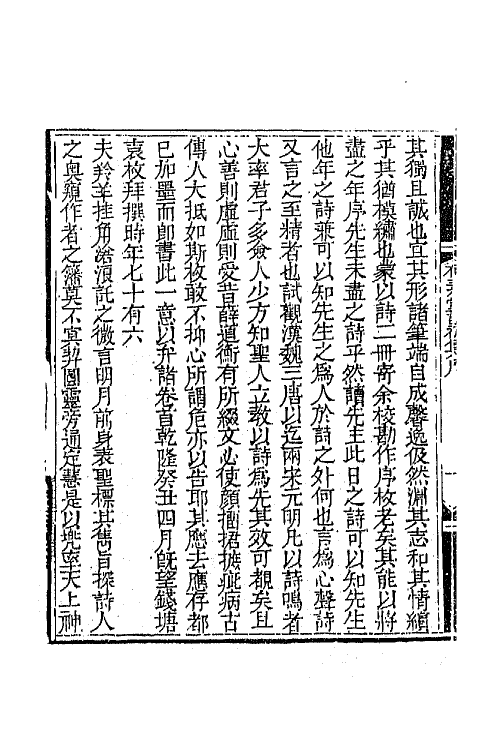 其獨且誠也宜其形諸筆端自成馨逸伋然淵其志和其情纏
乎其猶模繡也蒙以詩二冊寄余校勘作序枚老矣其能以將
盡之年序先生未盡之詩乎然讀先生此日之詩可以知先生
他年之詩兼可以知先生之爲人於詩之外何也言爲心聲詩
又言之至精者也試觀漢魏三唐以迄兩宋元明凡以詩鳴者
大率君子多僉人少方知聖人立教以詩爲先其效可覩矣且
心善則虛虛則受昔薛道衡有所綴文必使顏㨨捃摭疵病古
傳人大抵如斯枚敢不抑心所謂危亦以告耶其應去應存都
已加墨而卽書此一意以弁諸卷首乾隆癸丑四月旣望錢塘
袁枚拜撰時年七十有六
夫羚羊挂角滄浪託之微言明月前身表聖標其雋旨探詩人
之奧窺作者之籓莫不冥契圓靈旁通定慧是以兜率天上神